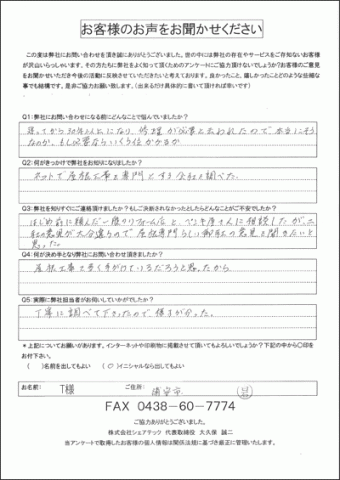 お客様のお声をお聞かせください
この度は弊社にお問い合わせを頂き誠にありがとうございました。世の中には弊社の存在やサービスをご存知ないお客様
が沢山いらっしゃいます。その方たちにも弊社をよく知って頂くためのアンケートにご協力頂けないでしょうか？お客様のご意見
をお聞かせいただき今後の活動に反映させていただきたいと考えております。良かったこと、嬉しかったことどのような些細な
事でも結構です。是非ご協力お願い致します。（出来るだけ具体的に書いて頂ければ幸いです）
Q1：弊社にお問い合わせになる前にどんなことで悩んでいましたか？
建ってから30年以上になり、修理が必要と言われたので本当にそう
なのか。もし必要ならいくら位かかるか
Q2：何がきっかけで弊社をお知りになりましたか？
ネットで屋根工事を専門とする会社を調べた。
Q3：弊社を知りすぐにご連絡頂けましたか？もしご決断されなかったとしたらどんなことがご不安でしたか？
はじめ前に頼んだ一度のリフォーム店と、ペンキ屋さんに相談したが、二
社の意見が大分違うので屋根専門らしい御社の意見を聞きたいと
思った。
Q4：何が決め手となり弊社にお問い合わせ頂きましたか？
屋根工事を多く手がけているだろうと思ったから
Q5：実際に弊社担当者がお伺いしていかがでしたか？
丁寧に調べて下さったので様子が分った。
＊上記についてお願いがあります。インターネットや印刷物に掲載させて頂いてもよろしいでしょうか？下記の中から○印を
お付け下さい。
（　）名前を出してもよい　（○）イニシャルなら出してもよい
お名前： T様 ご住所： 浦安市
FAX 0438-60-7774
ご協力ありがとうございました。
株式会社シェアテック 代表取締役 大久保 誠二
当アンケートで取得したお客様の個人情報は関係法規に基づき厳正に管理いたします。